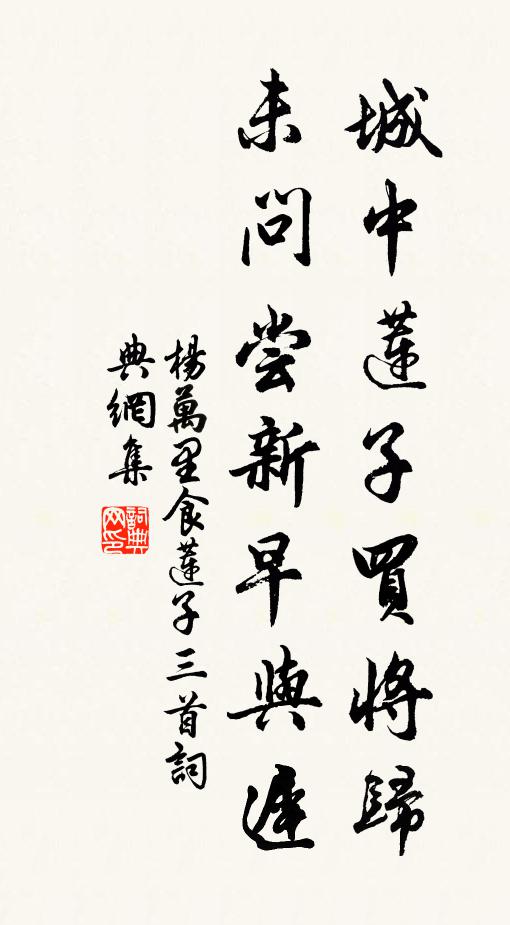 城中蓮子買將歸
未問尝新早與遲
楊萬里食蓮子三首詞
典網集
詞典網印